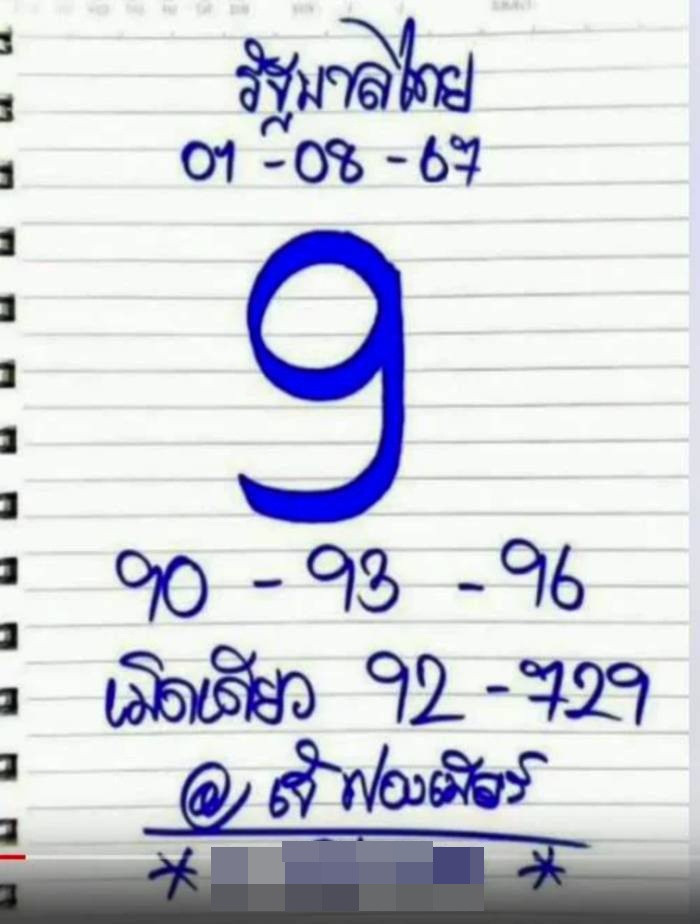 รัฐบาลไทย
01-08-67
9
90-93-96
เม็ดเดียว 92-729
@ เจ๊ฟองเบียร์
* *